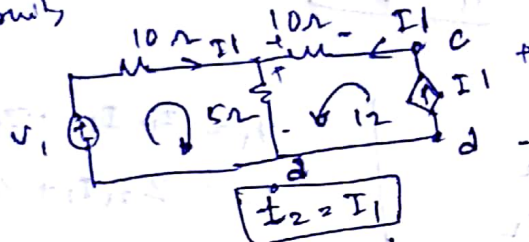 10Ω I1 10Ω I1
+ - c
+
V1 + 5Ω I2 I1
- d -
d
I2 = I1